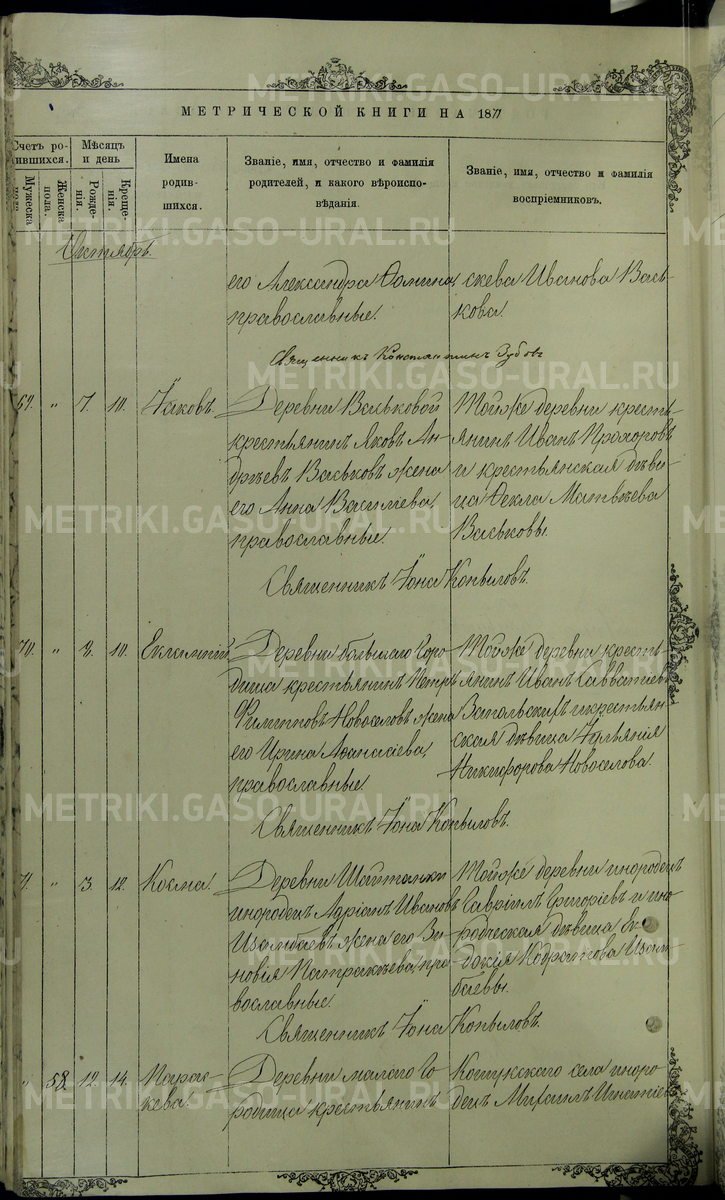 METRIKI.GASO-URAL.RU
МЕТРИЧЕСКОЙ КНИГИ НА 1877
Счетъ ро-
дившихся.
Мужеска
пола.
Женска
пола.
Мѣсяцъ
и день
Рожде-
нія.
Креще-
нія.
Имена
родив-
шихся.
Званіе, имя, отчество и фамилія
родителей, и какого вѣроиспо-
вѣданія.
Званіе, имя, отчество и фамилія
воспріемниковъ.
Октябрь
его Александра
православные.
скева Иванова Вась-
кова.
Священникъ Константинъ Зубовъ
69. " 7. 10. Іаковъ.
Деревни Васьковой
крестьянинъ Яковъ Ан-
дреевъ Васьковъ жена
его Анна Василіева,
православные.
Тойже деревни кресть-
янинъ Иванъ Прохоровъ
и крестьянская дѣви-
ца Фекла Матвѣева
Васьковы.
Священникъ Іона Копыловъ.
70. " 8. 10. Евлампій
Деревни большаго Горо-
дища крестьянинъ Петръ
Филипповъ Новоселовъ жена
его Ирина Аѳанасіева,
православные.
Тойже деревни кресть-
янинъ Иванъ Савватіевъ
и крестьян-
ская дѣвица
Никифорова Новоселова.
Священникъ Іона Копыловъ.
71. " 3. 12. Косма.
Деревни Шайтанки
инородецъ Адріанъ Ивановъ
Изамбаевъ жена его Зи-
новія Патракѣева, пра-
вославные.
Тойже деревни инородецъ
Гавріилъ Григоріевъ и ино-
родческая дѣвица Ев-
докія Кодратова Изам-
баевы.
Священникъ Іона Копыловъ.
" 58. 12. 14. Парас-
кева.
Деревни малаго Го-
родища крестьянинъ
села иноро-
децъ Михаилъ Игнатіев